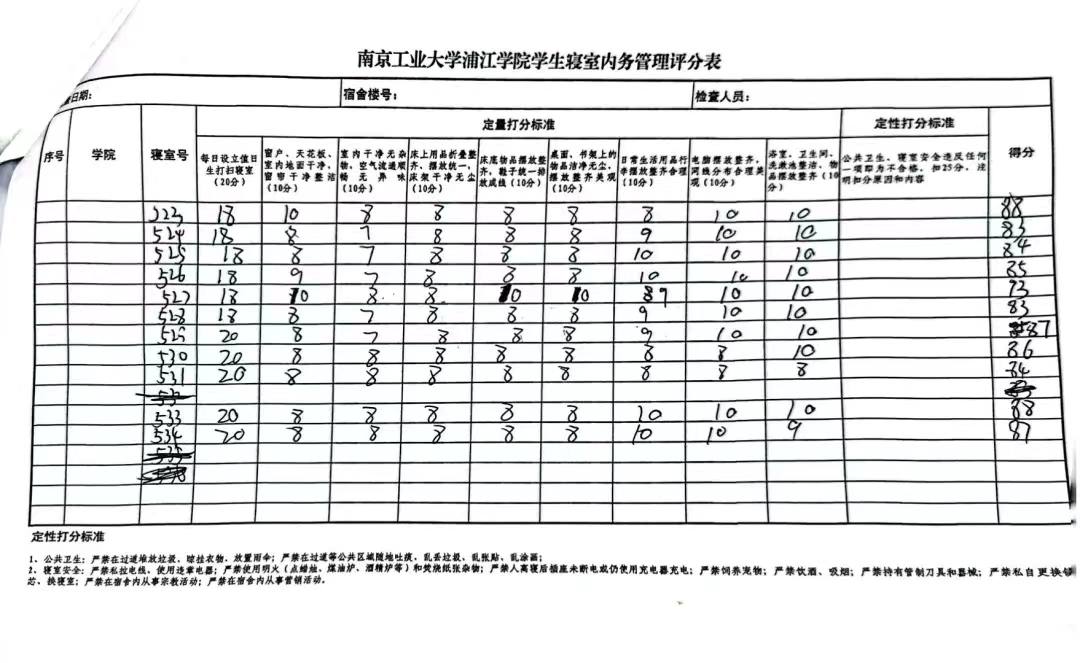 南京工业大学浦江学院学生寝室内务管理评分表
日期： 宿舍楼号： 检查人员：
序号 学院 寝室号 定量打分标准 定性打分标准 得分
每日设立值日生打扫寝室（20分） 窗户、天花板、室内地面干净、窗帘干净整洁（10分） 室内干净无杂物、空气流通顺畅无异味（10分） 床上用品折叠整齐、摆放统一，床架干净无尘（10分） 床底物品摆放整齐，鞋子统一排放成线（10分） 桌面、书架上的物品洁净无尘，摆放整齐美观（10分） 日常生活用品行李摆放整齐合理（10分） 电脑摆放整齐，网线分布合理美观（10分） 浴室、卫生间、洗漱池整洁、物品摆放整齐（10分） 公共卫生、寝室安全违反任何一项即为不合格，扣25分，注明扣分原因和内容
523 18 10 8 8 8 8 8 10 10 88
524 18 8 7 8 8 8 9 10 10 83
525 18 8 7 8 8 8 10 10 10 84
526 18 9 7 8 8 8 10 10 10 85
527 18 10 8 8 10 10 89 10 10 93
528 18 8 7 8 8 8 9 10 10 83
529 20 8 7 8 8 8 9 10 10 87
530 20 8 8 8 8 8 8 8 10 86
531 20 8 8 8 8 8 8 8 8 84
533 20 8 8 8 8 8 10 10 10 88
534 20 8 8 8 8 8 10 10 9 87
定性打分标准
1、公共卫生：严禁在过道堆放垃圾、晾挂衣物、放置雨伞；严禁在过道等公共区域随地吐痰、乱丢垃圾、乱张贴、乱涂画；
2、寝室安全：严禁私拉电线、使用违章电器；严禁使用明火（点蜡烛、煤油炉、酒精炉等）和焚烧纸张杂物；严禁人离寝后插座未断电或仍使用充电器充电；严禁饲养宠物；严禁饮酒、吸烟；严禁持有管制刀具和器械；严禁私自更换锁
芯、换寝室；严禁在宿舍内从事宗教活动；严禁在宿舍内从事营销活动。